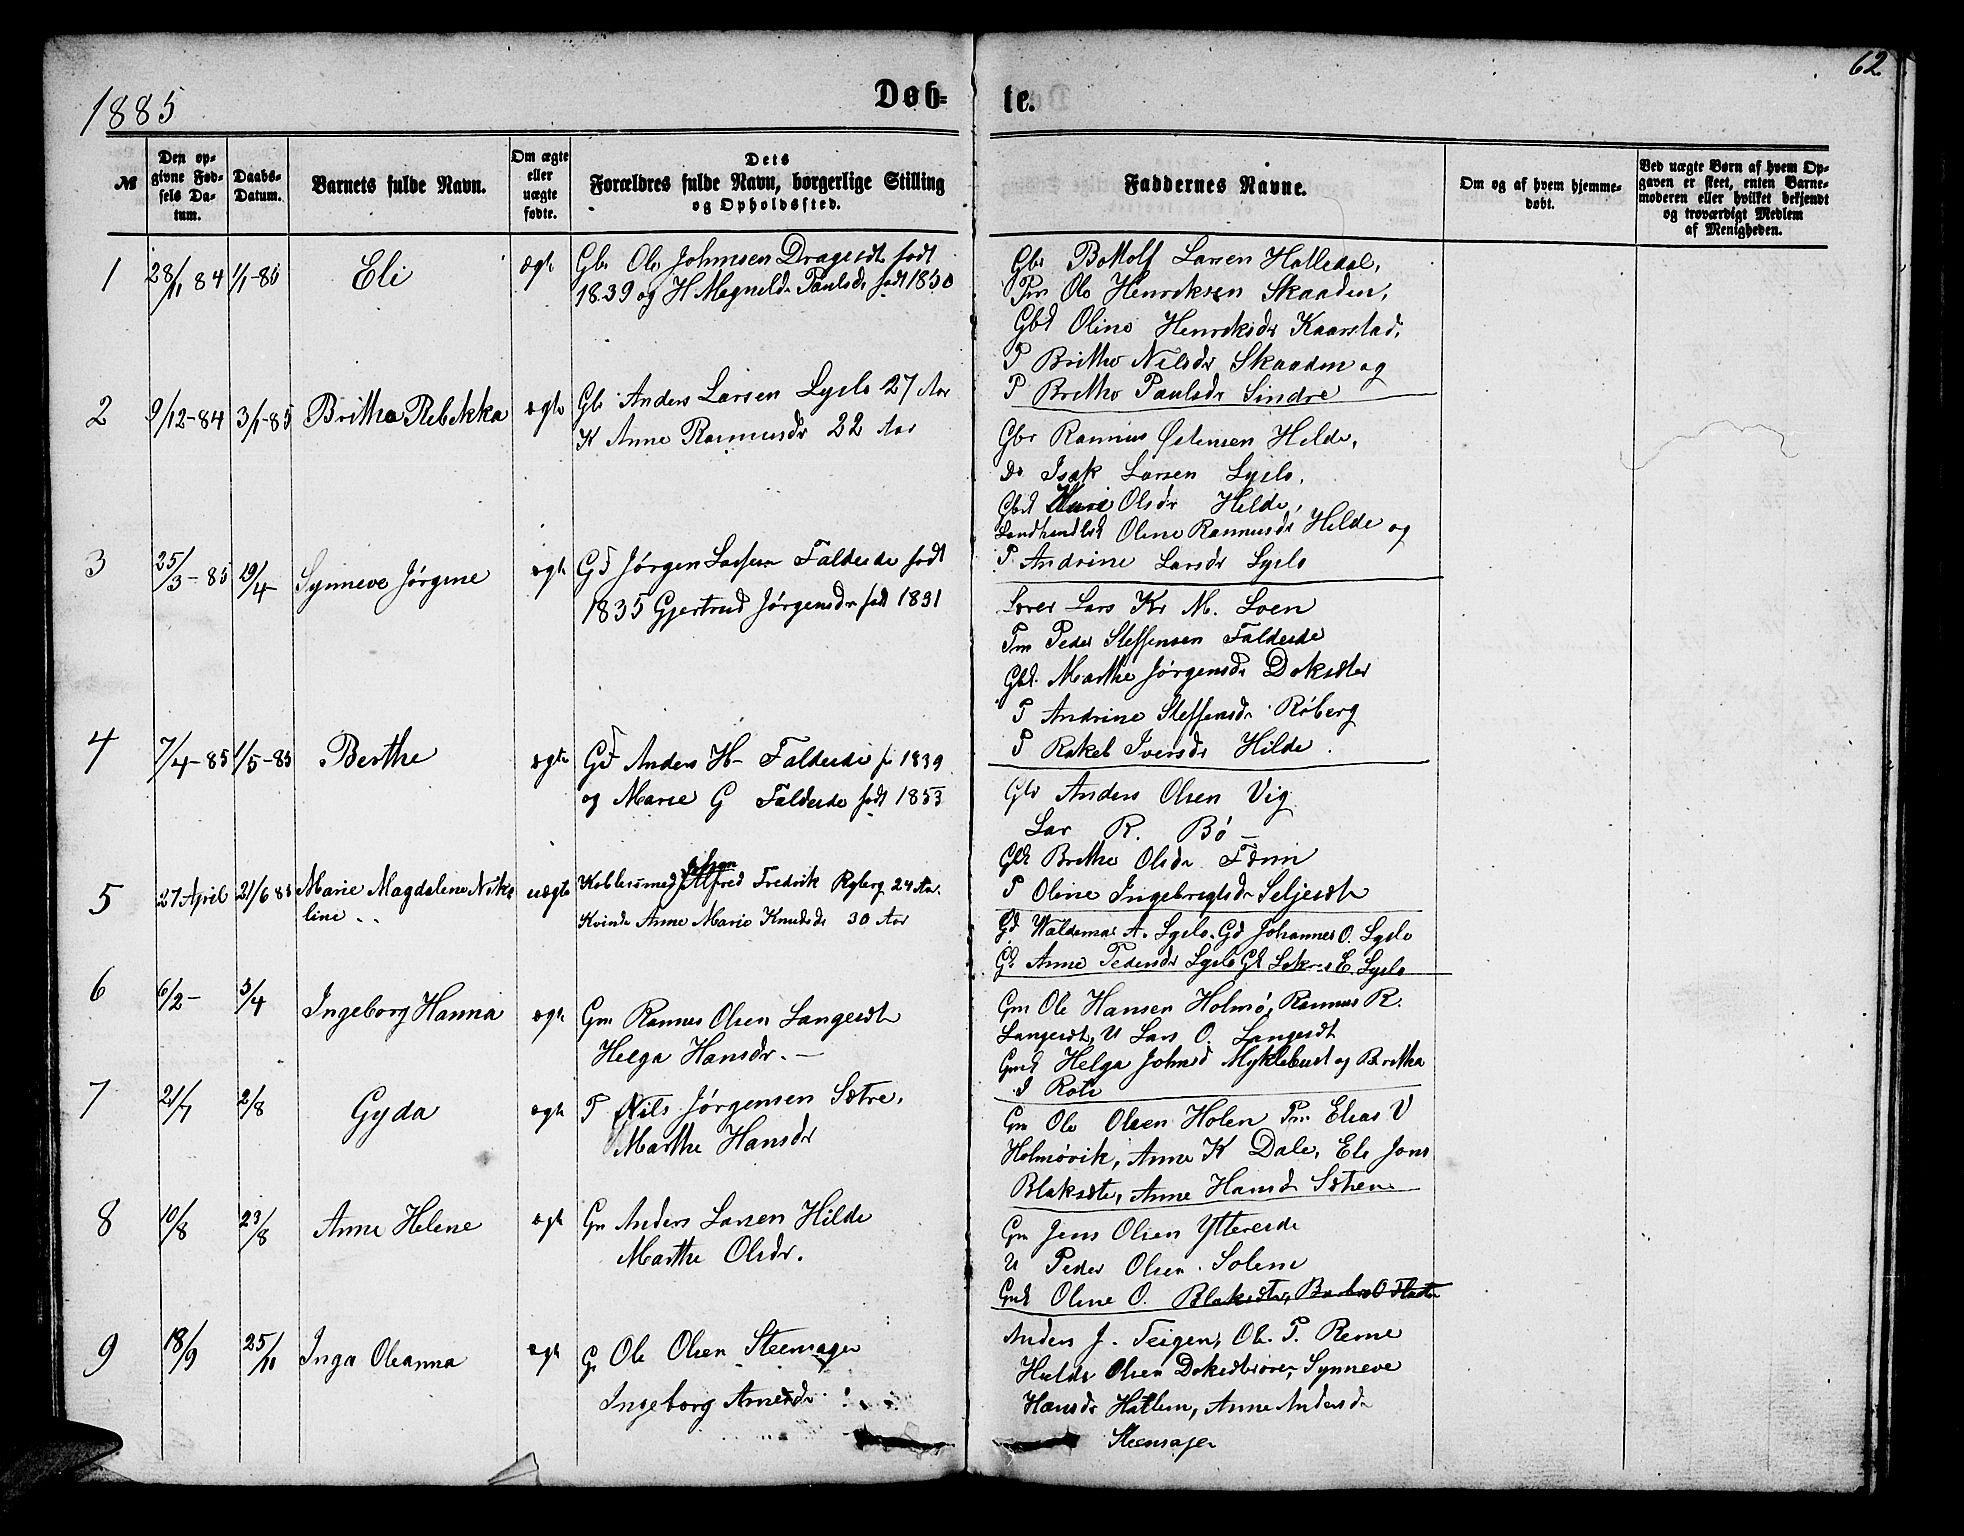 62
1885
Døb-
te.
№
Den op-
givne Fød-
sels Da-
tum.
Daabs-
Datum.
Barnets fulde Navn.
Om ægte
eller
uægte
fødte.
Dets
Forældres fulde Navn, borgerlige Stilling
og Opholdssted.
Faddernes Navne.
Om og af hvem hjemme-
døbt.
Ved uægte Børn af hvem Op-
gaven er skeet, enten Barne-
moderen eller hvilket bekjendt
og troværdigt Medlem
af Menigheden.
1
28/11 84
1/1-85
Eli
ægte
Gbr Ole Johnsen Dragesdt født
1839 og H Magnilde Paulsdr født 1850
Gbr Bottolf Larsen Halledal,
Pm Ole Henriksen Skaaden,
Gbd Oline Henriksdr Kaarstad,
P Brithe Nilsdr Skaaden og
P Brithe Paulsdr Sindre
2
9/12-84
3/1-85
Brithe Rebekka
ægte
Gb Anders Larsen Lyslo 27 Aar
K Anne Rasmusdr 22 Aar
Gbr Rasmus Østensen Hilde,
Do Isak Larsen Lyslo,
Gbd Olsdr Hilde,
Landhandlsk Oline Rasmusdr Hilde og
P. Andrine Larsdr Lyslo
3
25/3-85
19/4
Synneve Jørgine
ægte
Gd Jørgen Faldeide født
1835 Gjertrud Jørgensdr født 1831
Lærer Lars Kr M. Loen
Pm Peder Steffensen Faldeide
Gbd. Marthe Jørgensdr Doksæter
P Andrine Steffensdr Røberg
P Rakel Iversdr Hilde.
4
7/4-85
1/5-85
Berthe
ægte
Gd Anders H- Faldeide f 1839
og Marie G Faldeide født 1853
Gbr Anders Olsen Vig
Lar R. Bø
Gbk Brithe Olsdr
P Oline Ingebregtsdr Seljesdt
5
27 April
21/6 85
Marie Magdalene Niko
line
uægte
Kobbersmed Johan Alfred Fredrik Ryberg 24 Aar.
Kvinde Anne Marie Knudsdr 30 Aar
Gd Waldemar A. Lyslo. Gd Johannes O. Lyslo
Gk Anne Pedersdr Lyslo Gk E. Lyslo
6
6/2-
3/4
Ingeborg Hanna
ægte
Gm Rasmus Olsen Langesdt
Helga Hansdr. -
Gm Ole Hansen Holmø, Rasmus R.
Langesdt, U Lars O. Langesdt
Gmk Helga Johnsd Myklebust og Brithe
J Roti
7
21/7
2/8
Gyda
ægte
P Nils Jørgensen Sætre,
Marthe Hansdr
Gm Ole Olsen Holen Pm Elias V
Holmøvik, Anne K Dale, Eli Jons
Blaksæte, Anne Hansd Sætren
8
10/8
23/8
Anne Helene
ægte
Gm Anders Larsen Hilde
Marthe Olsdr.
Gm Jens Olsen Yttereide
U Peder Olsen Solem
Gmk Oline O. Blaksæter,
9
18/9
25/11
Inga Oleanna
ægte
G Ole Olsen Steensager
Ingeborg Arnesdr
Anders J. Teigen, Ole P. Reme
Hilde Olsen Synneve
Hansdr Hatlem, Anne Andersdr
Steensager